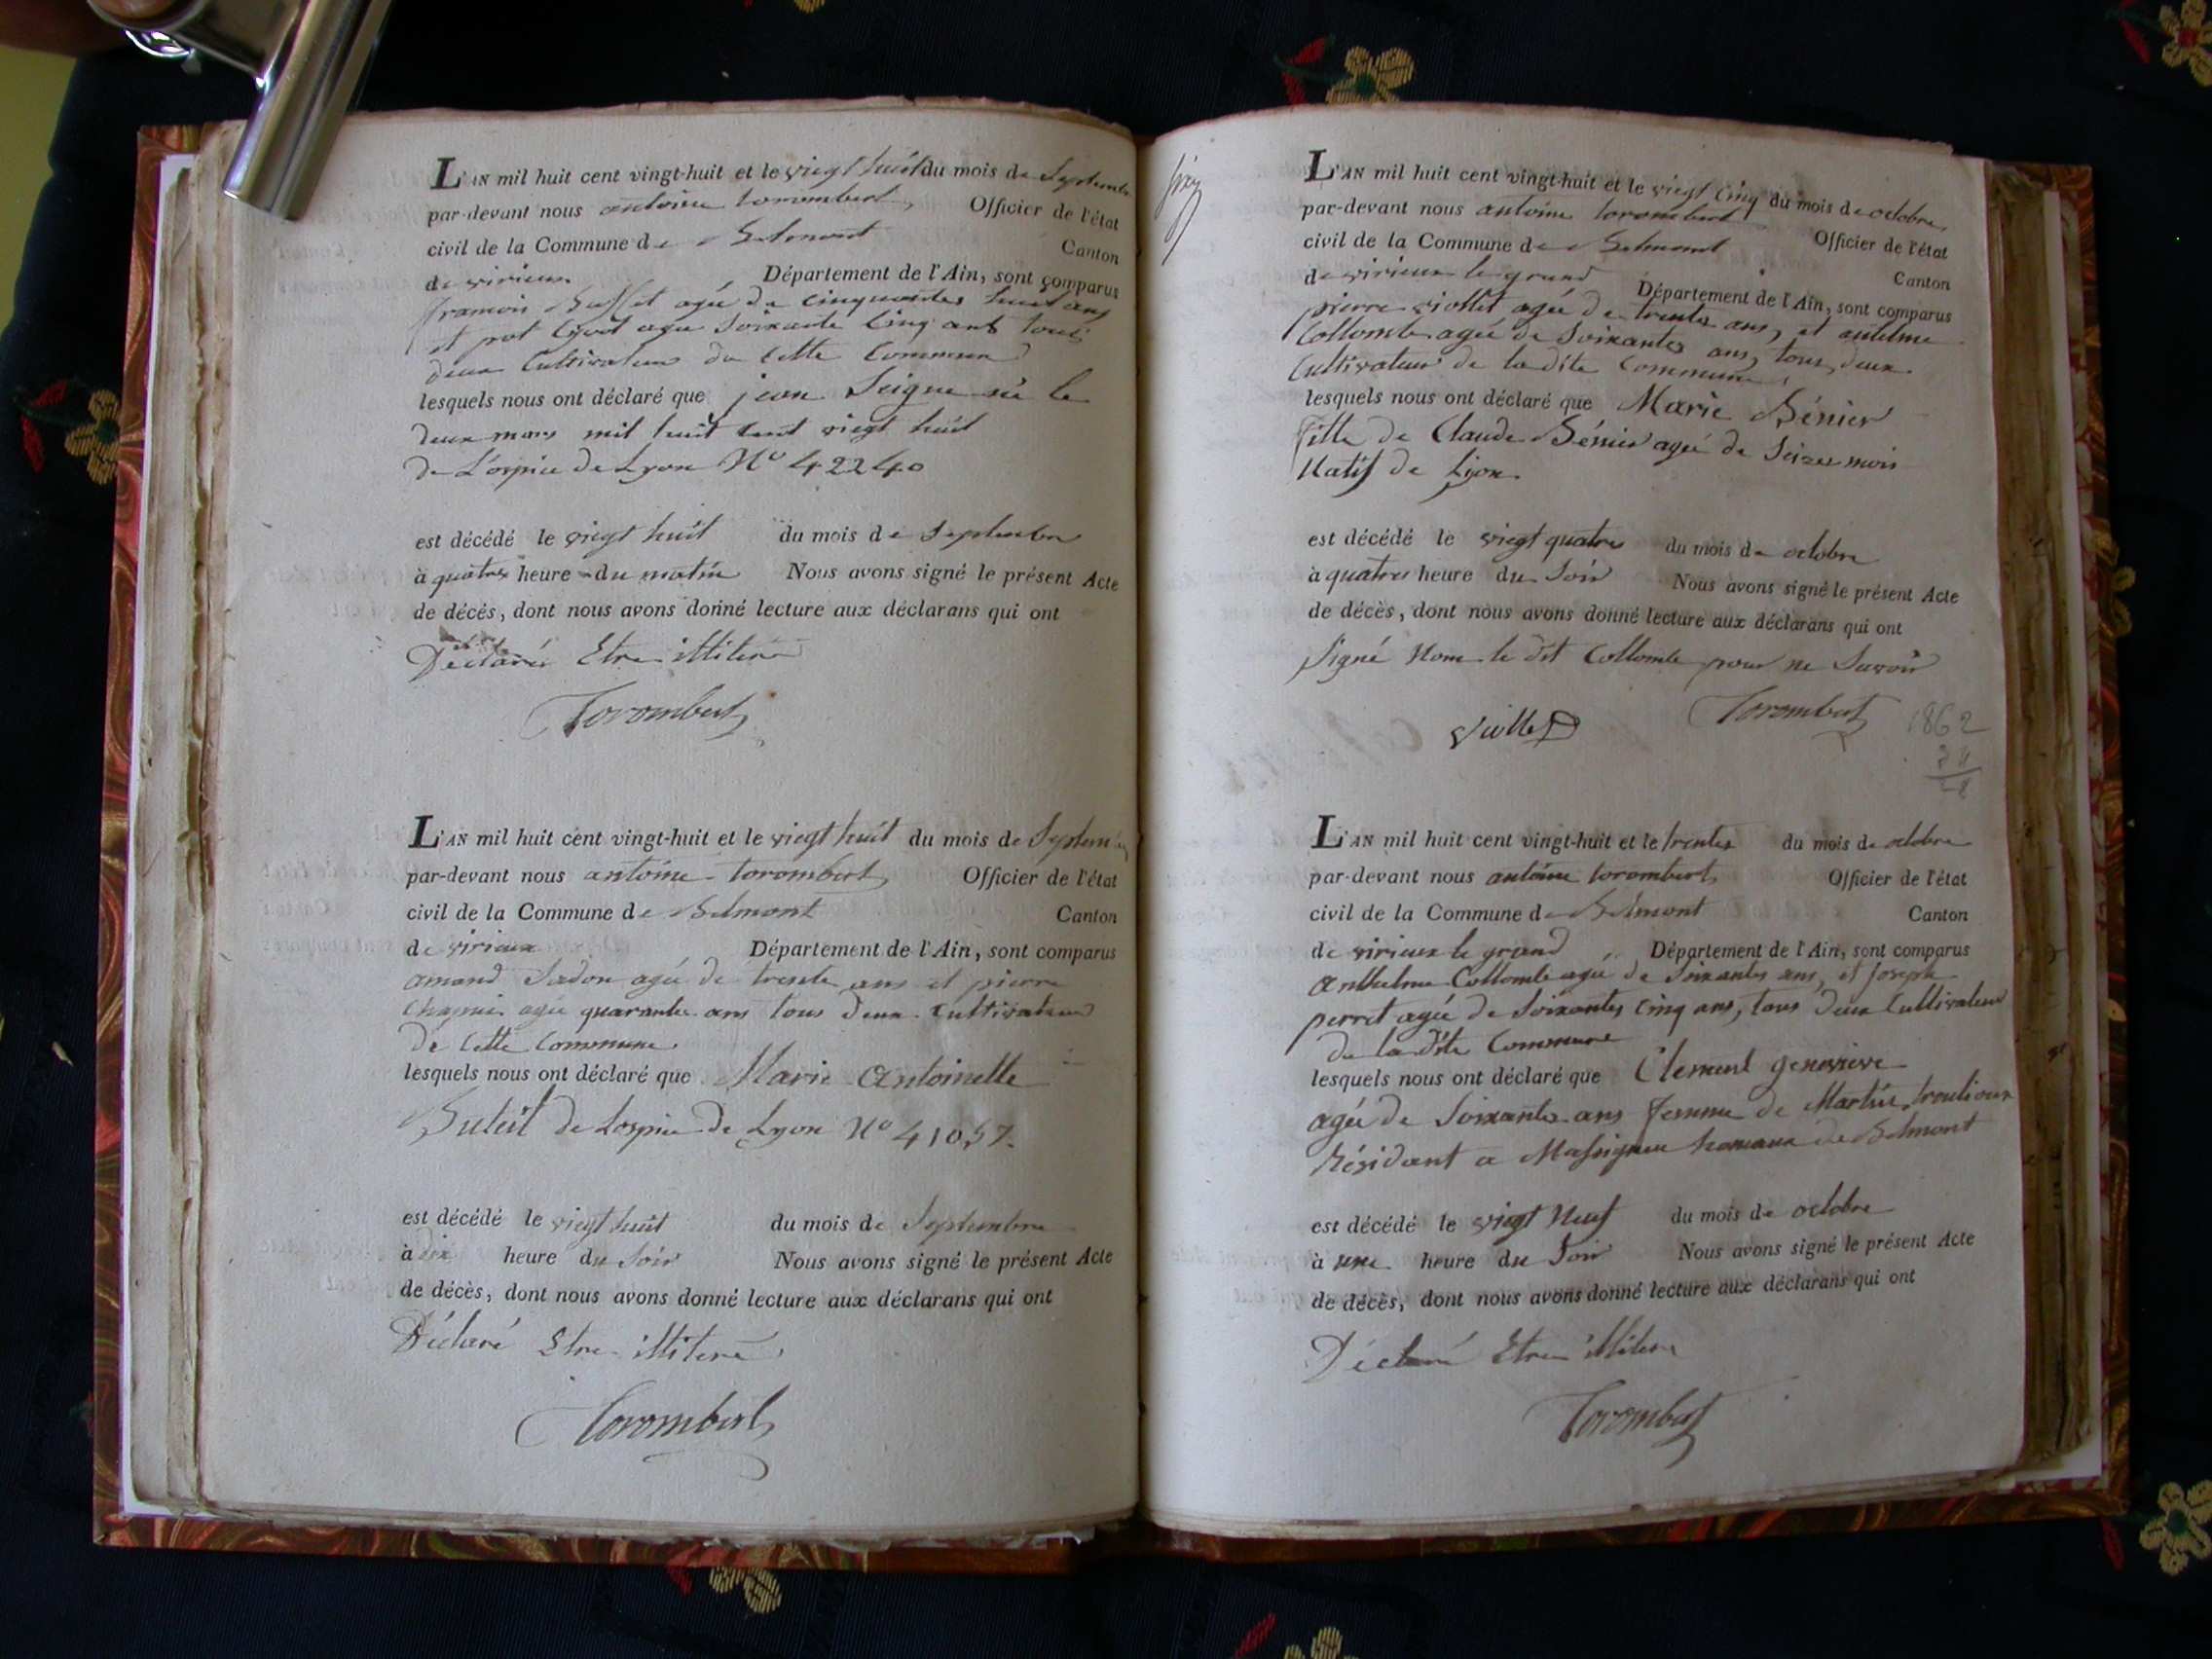 L'AN mil huit cent vingt-huit et le vingt huit du mois de Septembre
par-devant nous antoine torombert, Officier de l'état
civil de la Commune de Belmont Canton
de virieux Département de l'Ain, sont comparus
agée de cinquantes huit ans
et agée Soixante cinq ans tous
deux Cultivateur de cette Commune
lesquels nous ont déclaré que jean Seigne né le
deux mars mil huit cent vingt huit
de L'ospice de Lyon N° 42240
est décédé le vingt huit du mois de Septembre
à quatres heure du matin Nous avons signé le présent Acte
de décés, dont nous avons donné lecture aux déclarans qui ont
Déclaré Etre illitere
Torombert
L'AN mil huit cent vingt-huit et le vingt huit du mois de Septem
par-devant nous antoine torombert, Officier de l'état
civil de la Commune de Belmont Canton
de virieux Département de l'Ain, sont comparus
amand agée de trente ans et pierre
agée quarante ans tous deux Cultivateur
de Cette Commune
lesquels nous ont déclaré que Marie Antoinette
de Lospice de Lyon N° 41057.
est décédé le vingt huit du mois de Septembre
à dix heure du Soir Nous avons signé le présent Acte
de décès, dont nous avons donné lecture aux déclarans qui ont
Déclaré Etre illiteré
Torombert
L'AN mil huit cent vingt-huit et le vingt cinq du mois de octobre
par-devant nous antoine torombert Officier de l'état
civil de la Commune de Belmont Canton
de virieux le grand Département de l'Ain, sont comparus
pierre viollet agée de trentes ans, et antelme
Collombe agée de Soixantes ans, tous deux
Cultivateur de la dite Commune,
lesquels nous ont déclaré que Marie Bénier
fille de Claude Bénier agée de Seize mois
Natif de Lyon
est décédé le vingt quatres du mois de octobre
à quatres heure du Soir Nous avons signé le présent Acte
de décès, dont nous avons donné lecture aux déclarans qui ont
Signé Nom le dit Collombe pour ne Savoir
Viollet Torombert
1862
L'AN mil huit cent vingt-huit et le trentes du mois de octobre
par-devant nous antoine torombert, Officier de l'état
civil de la Commune de Belmont Canton
de virieux le grand Département de l'Ain, sont comparus
Anthelme Collombe agée de Soixantes ans, et joseph
perret agée de Soixantes cinq ans, tous deux Cultivateur
de la dite Commune
lesquels nous ont déclaré que Clement genevieve
agée de Soixante ans femme de Martin
Résidant a Massignieu hameaux de Belmont
est décédé le vingt Neuf du mois de octobre
à une heure du Soir Nous avons signé le présent Acte
de décès, dont nous avons donné lecture aux déclarans qui ont
Déclaré Etre illitere
Torombert